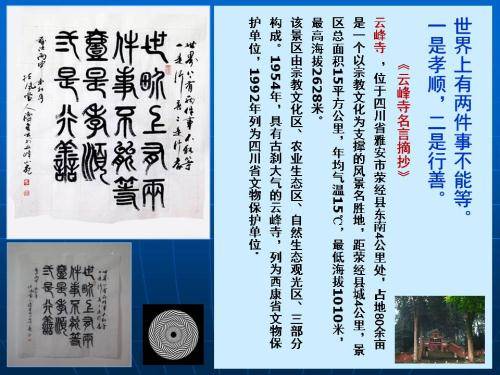 世界上有两件事不能等。
一是孝顺，二是行善。
《云峰寺名言摘抄》
云峰寺 ，位于四川省雅安市荥经县东南4公里处，占地80余亩
是一个以宗教文化为支撑的风景名胜地，距荥经县城4公里，景
区总面积15平方公里，年均气温15℃，最低海拔1010米，
最高海拔2628米。
该景区由宗教文化区、农业生态区、自然生态观光区、三部分
构成。1954年，具有古刹大气的云峰寺，列为西康省文物保
护单位，1992年列为四川省文物保护单位.
世界上有兩
件事不能等
壹是孝順
弍是行善
世界上有兩
件事不能等
壹是孝順
弍是行善